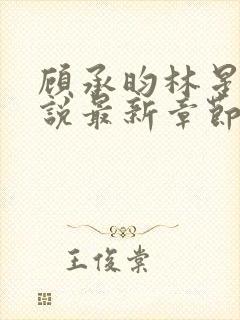 顾承昀林星
說最新章節
王俊棠